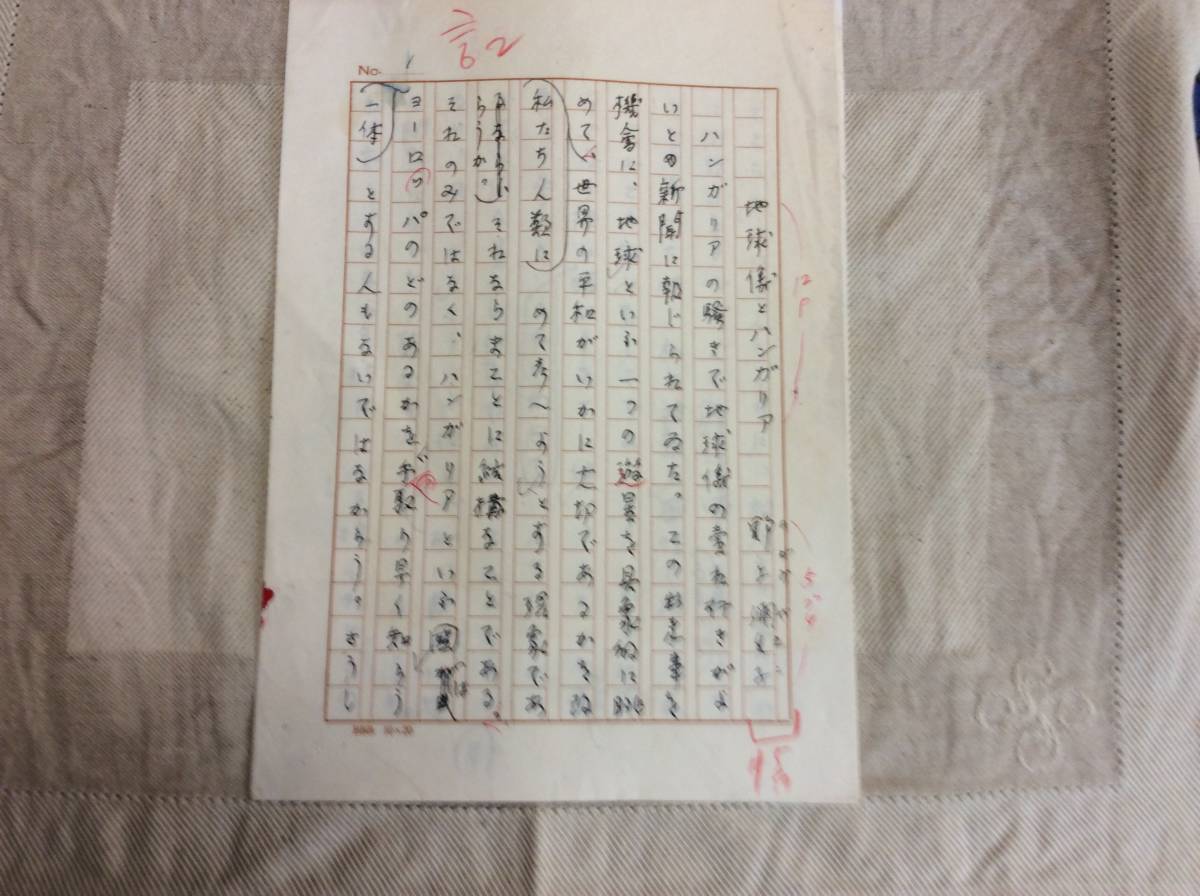 No. 1
地球儀とハンガリア
野上彌生子
ハンガリアの騒ぎで地球儀の賣れ行きがよ
いとの新聞に報じられてゐた。この出来事を
機會に、地球といふ一つの遊星を具象的に眺
めて、世界の平和がいかに大切であるかを改
私たち人類に めて考へようとする現象であ
らうか。それならまことに結構なことである。
それのみではなく、ハンガリアといふ國は
ヨーロッパのどのあるかを手取り早く知らう
一体とする人もないではなからう。さうし